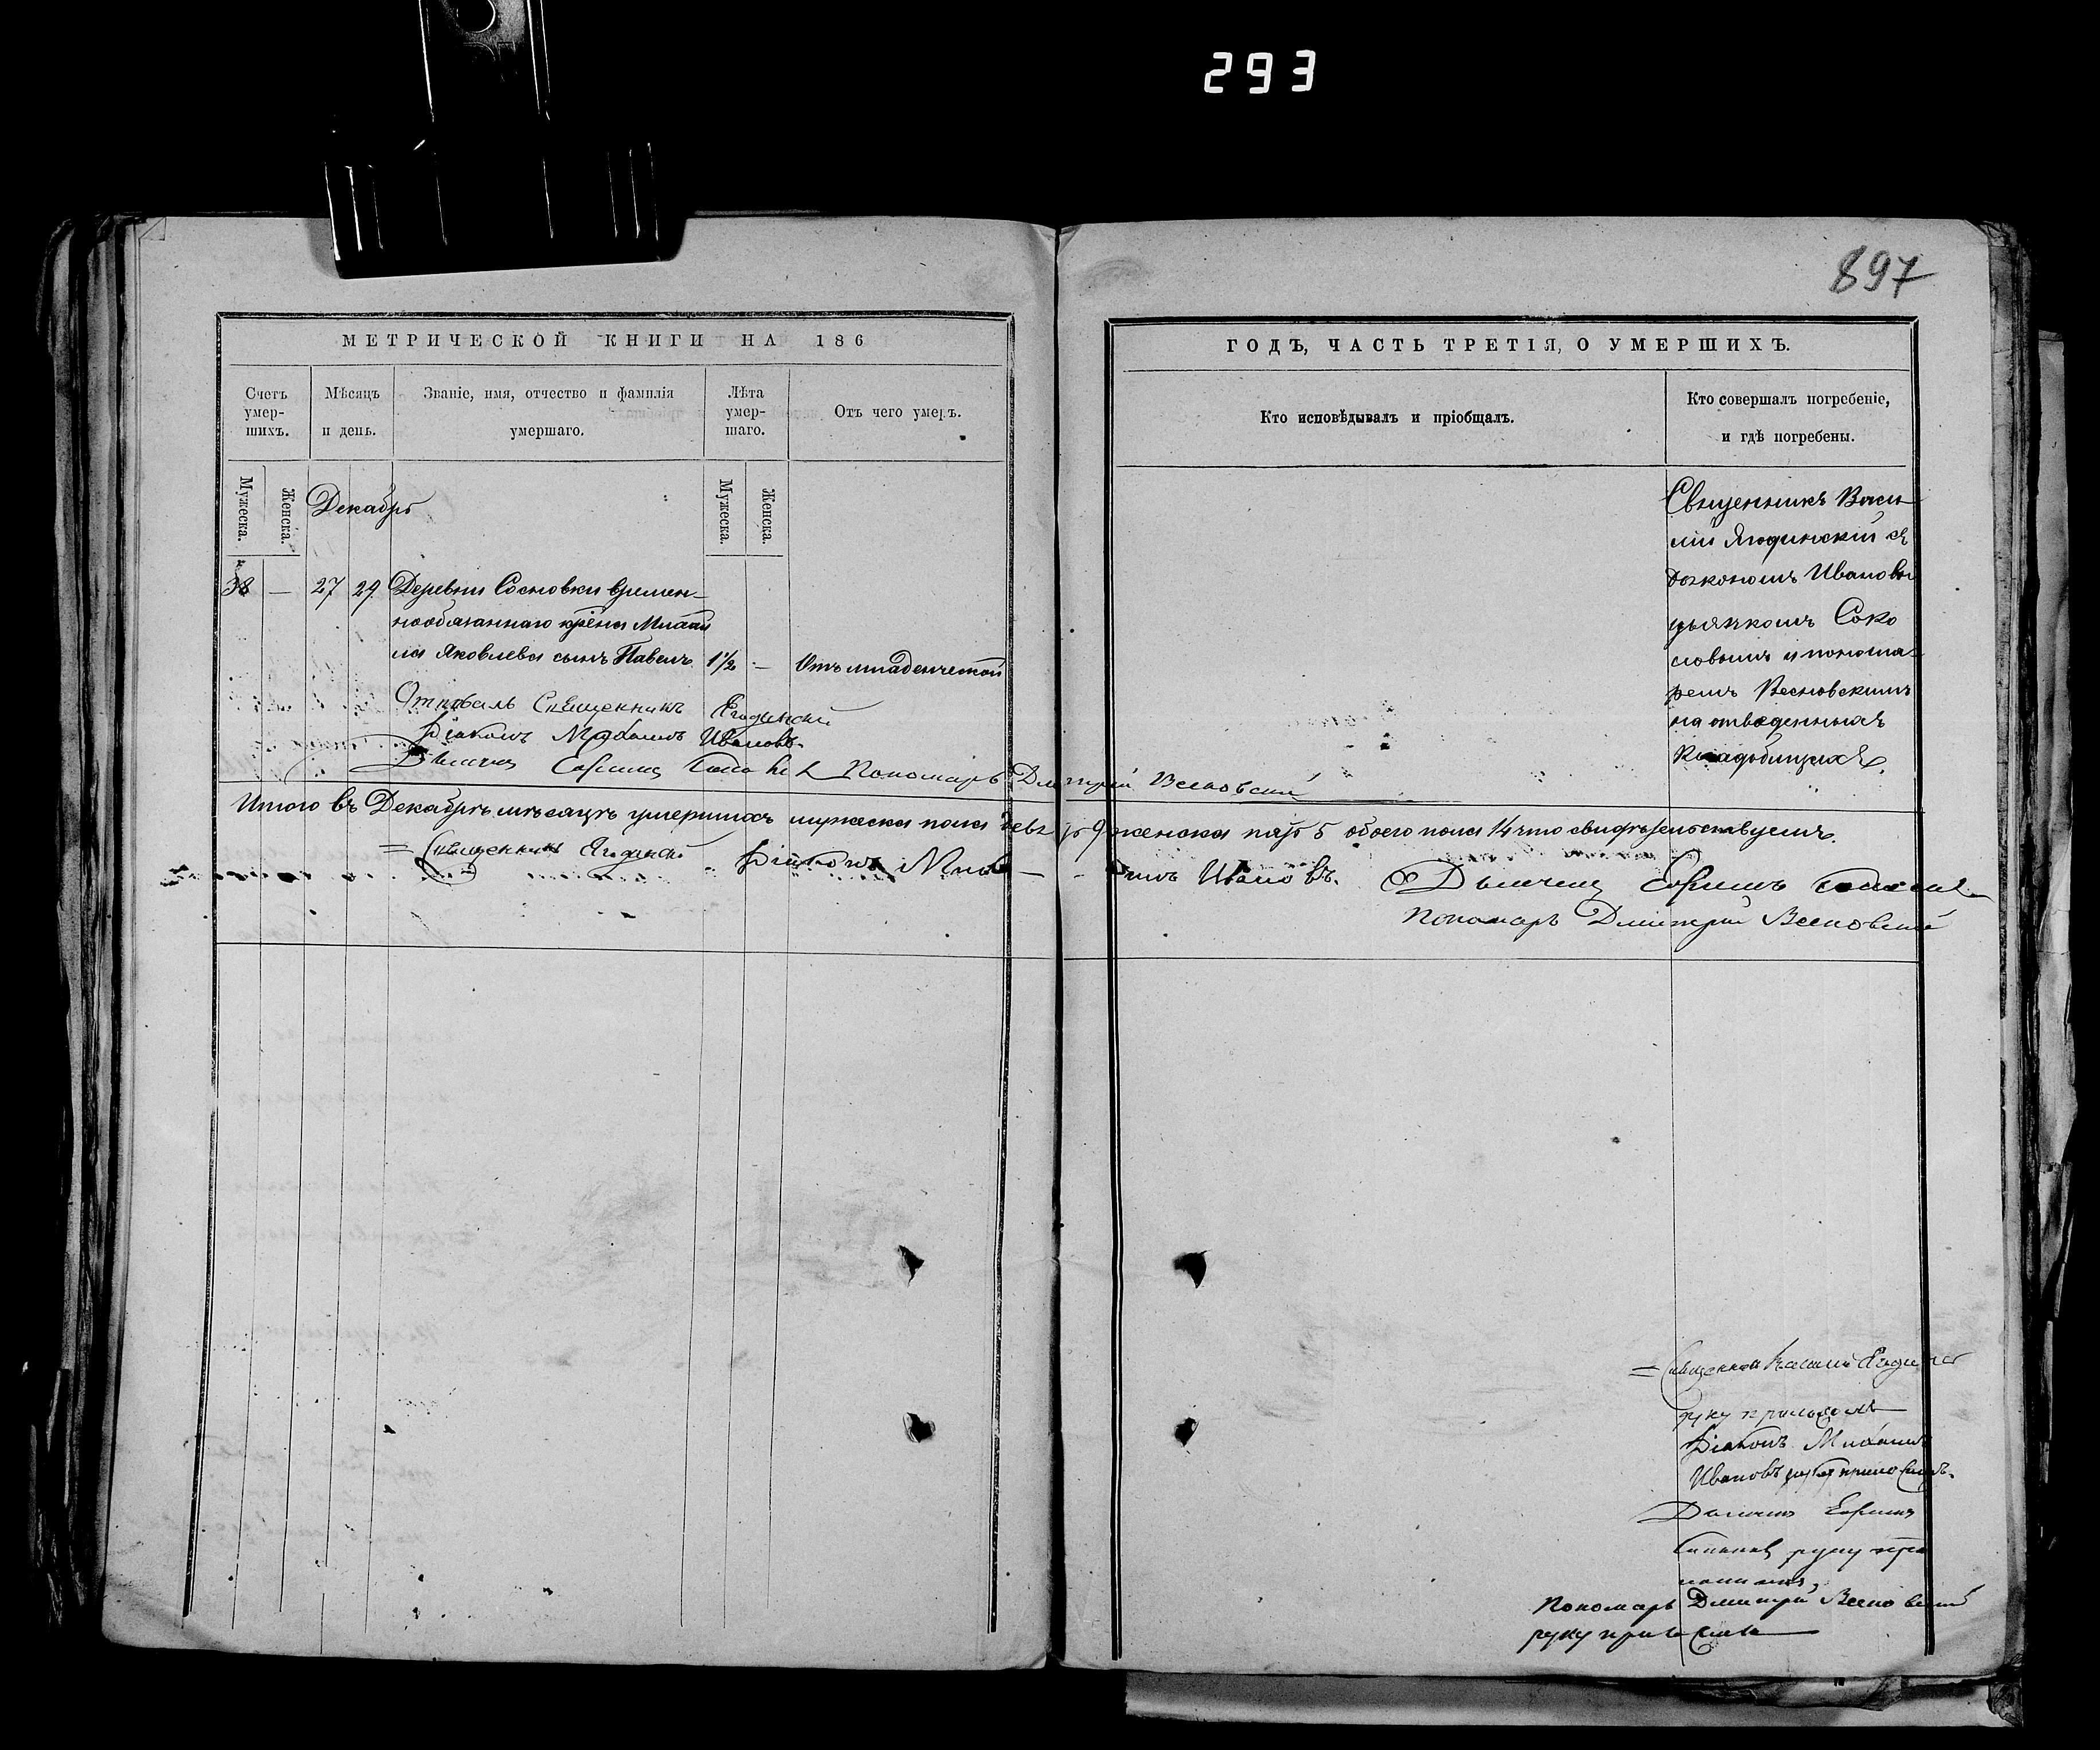 293
897
МЕТРИЧЕСКОЙ КНИГИ НА 186
Счетъ умер-шихъ.
Мѣсяцъ и день.
Званіе, имя, отчество и фамилія умершаго.
Лѣта умер-шаго.
Отъ чего умеръ.
Мужеска.
Женска.
Мужеска.
Женска.
Декабрь
38 — 27 29 Деревни Сосновки времен-
нообязаннаго крѣна Михаи
ла Яковлева сынъ Павелъ 1½ — Отъ младенческой
Отпѣвалъ Священникъ Ягодинскій
Діаконъ Михаилъ Ивановъ.
Дьячекъ Ефимъ Пономарь Дмитрій Весновскій
Итого въ Декабрѣ мѣсяцѣ умершихъ мужеска пола девять 9 женска пять 5 обоего пола 14 что свидѣтельствуемъ.
Священникъ Ягодинскій Діаконъ Михаилъ Ивановъ. Дьячекъ Ефимъ
Пономарь Дмитрій Весновскій
ГОДЪ, ЧАСТЬ ТРЕТІЯ, О УМЕРШИХЪ.
Кто исповѣдывалъ и пріобщалъ.
Кто совершалъ погребеніе,
и гдѣ погребены.
Священникъ Васи-
лій Ягодинскій съ
діакономъ Ивановы
дьячкомъ Соко
ловымъ и понома-
ремъ Весновскимъ
на отведенныхъ
кладбищахъ.
Священникъ Василій Ягодинс
руку приложилъ
Діаконъ Михаилъ
Ивановъ руку приложилъ.
Дьячекъ Ефимъ
руку при
ложилъ,
Пономарь Дмитрій Весновскій
руку приложилъ